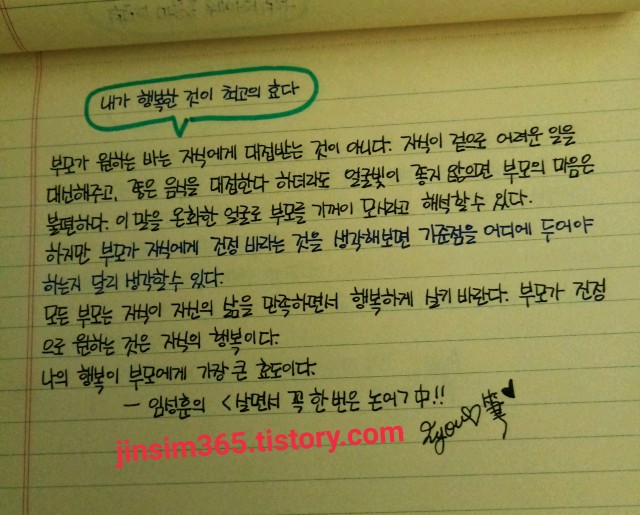 내가 행복한 것이 최고의 효다
부모가 원하는 바는 자식에게 대접받는 것이 아니다. 자식이 겉으로 어려운 일을
대신해주고, 좋은 음식을 대접한다 하더라도 얼굴빛이 좋지 않으면 부모의 마음은
불편하다. 이 말을 온화한 얼굴로 부모를 기꺼이 모시라고 해석할 수 있다.
하지만 부모가 자식에게 진정 바라는 것을 생각해보면 기준점을 어디에 두어야
하는지 달리 생각할 수 있다.
모든 부모는 자식이 자신의 삶을 만족하면서 행복하게 살기 바란다. 부모가 진정
으로 원하는 것은 자식의 행복이다.
나의 행복이 부모에게 가장 큰 효도이다.
- 임성훈의 <살면서 꼭 한 번은 논어> 中!!
jinsim365.tistory.com